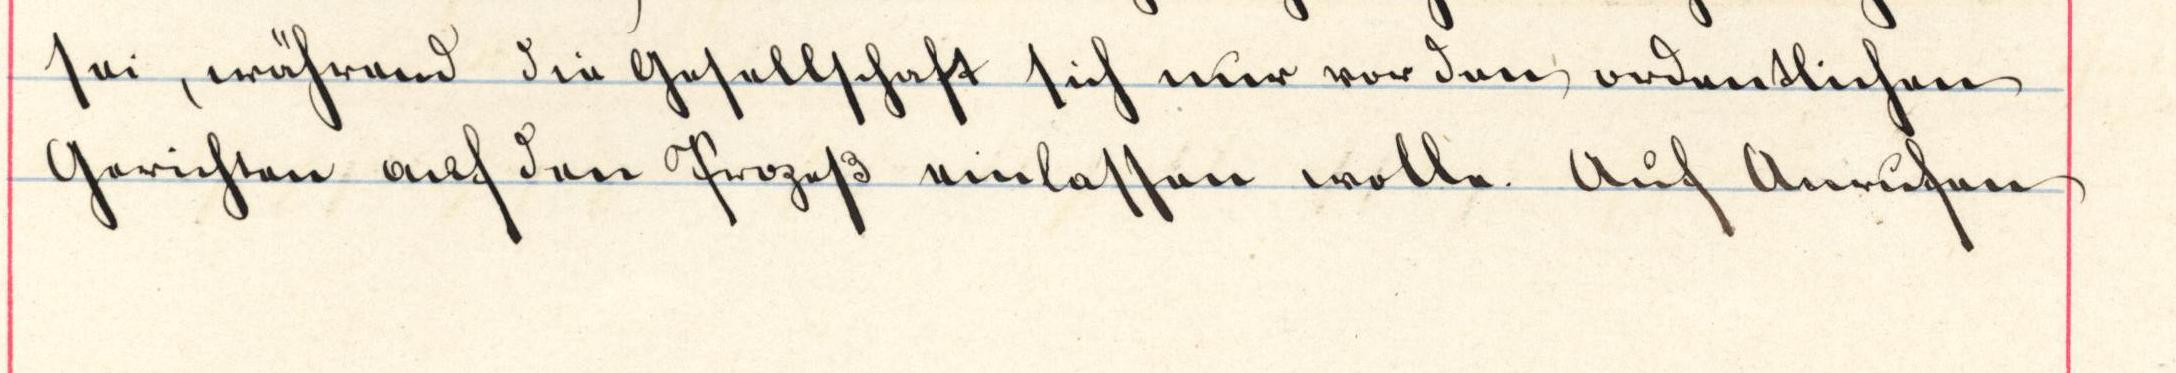 sei, während die Gesellschaft sich nur vor den ordentlichen
Gerichten auf den Prozeß einlassen wolle. Auf Anrufen